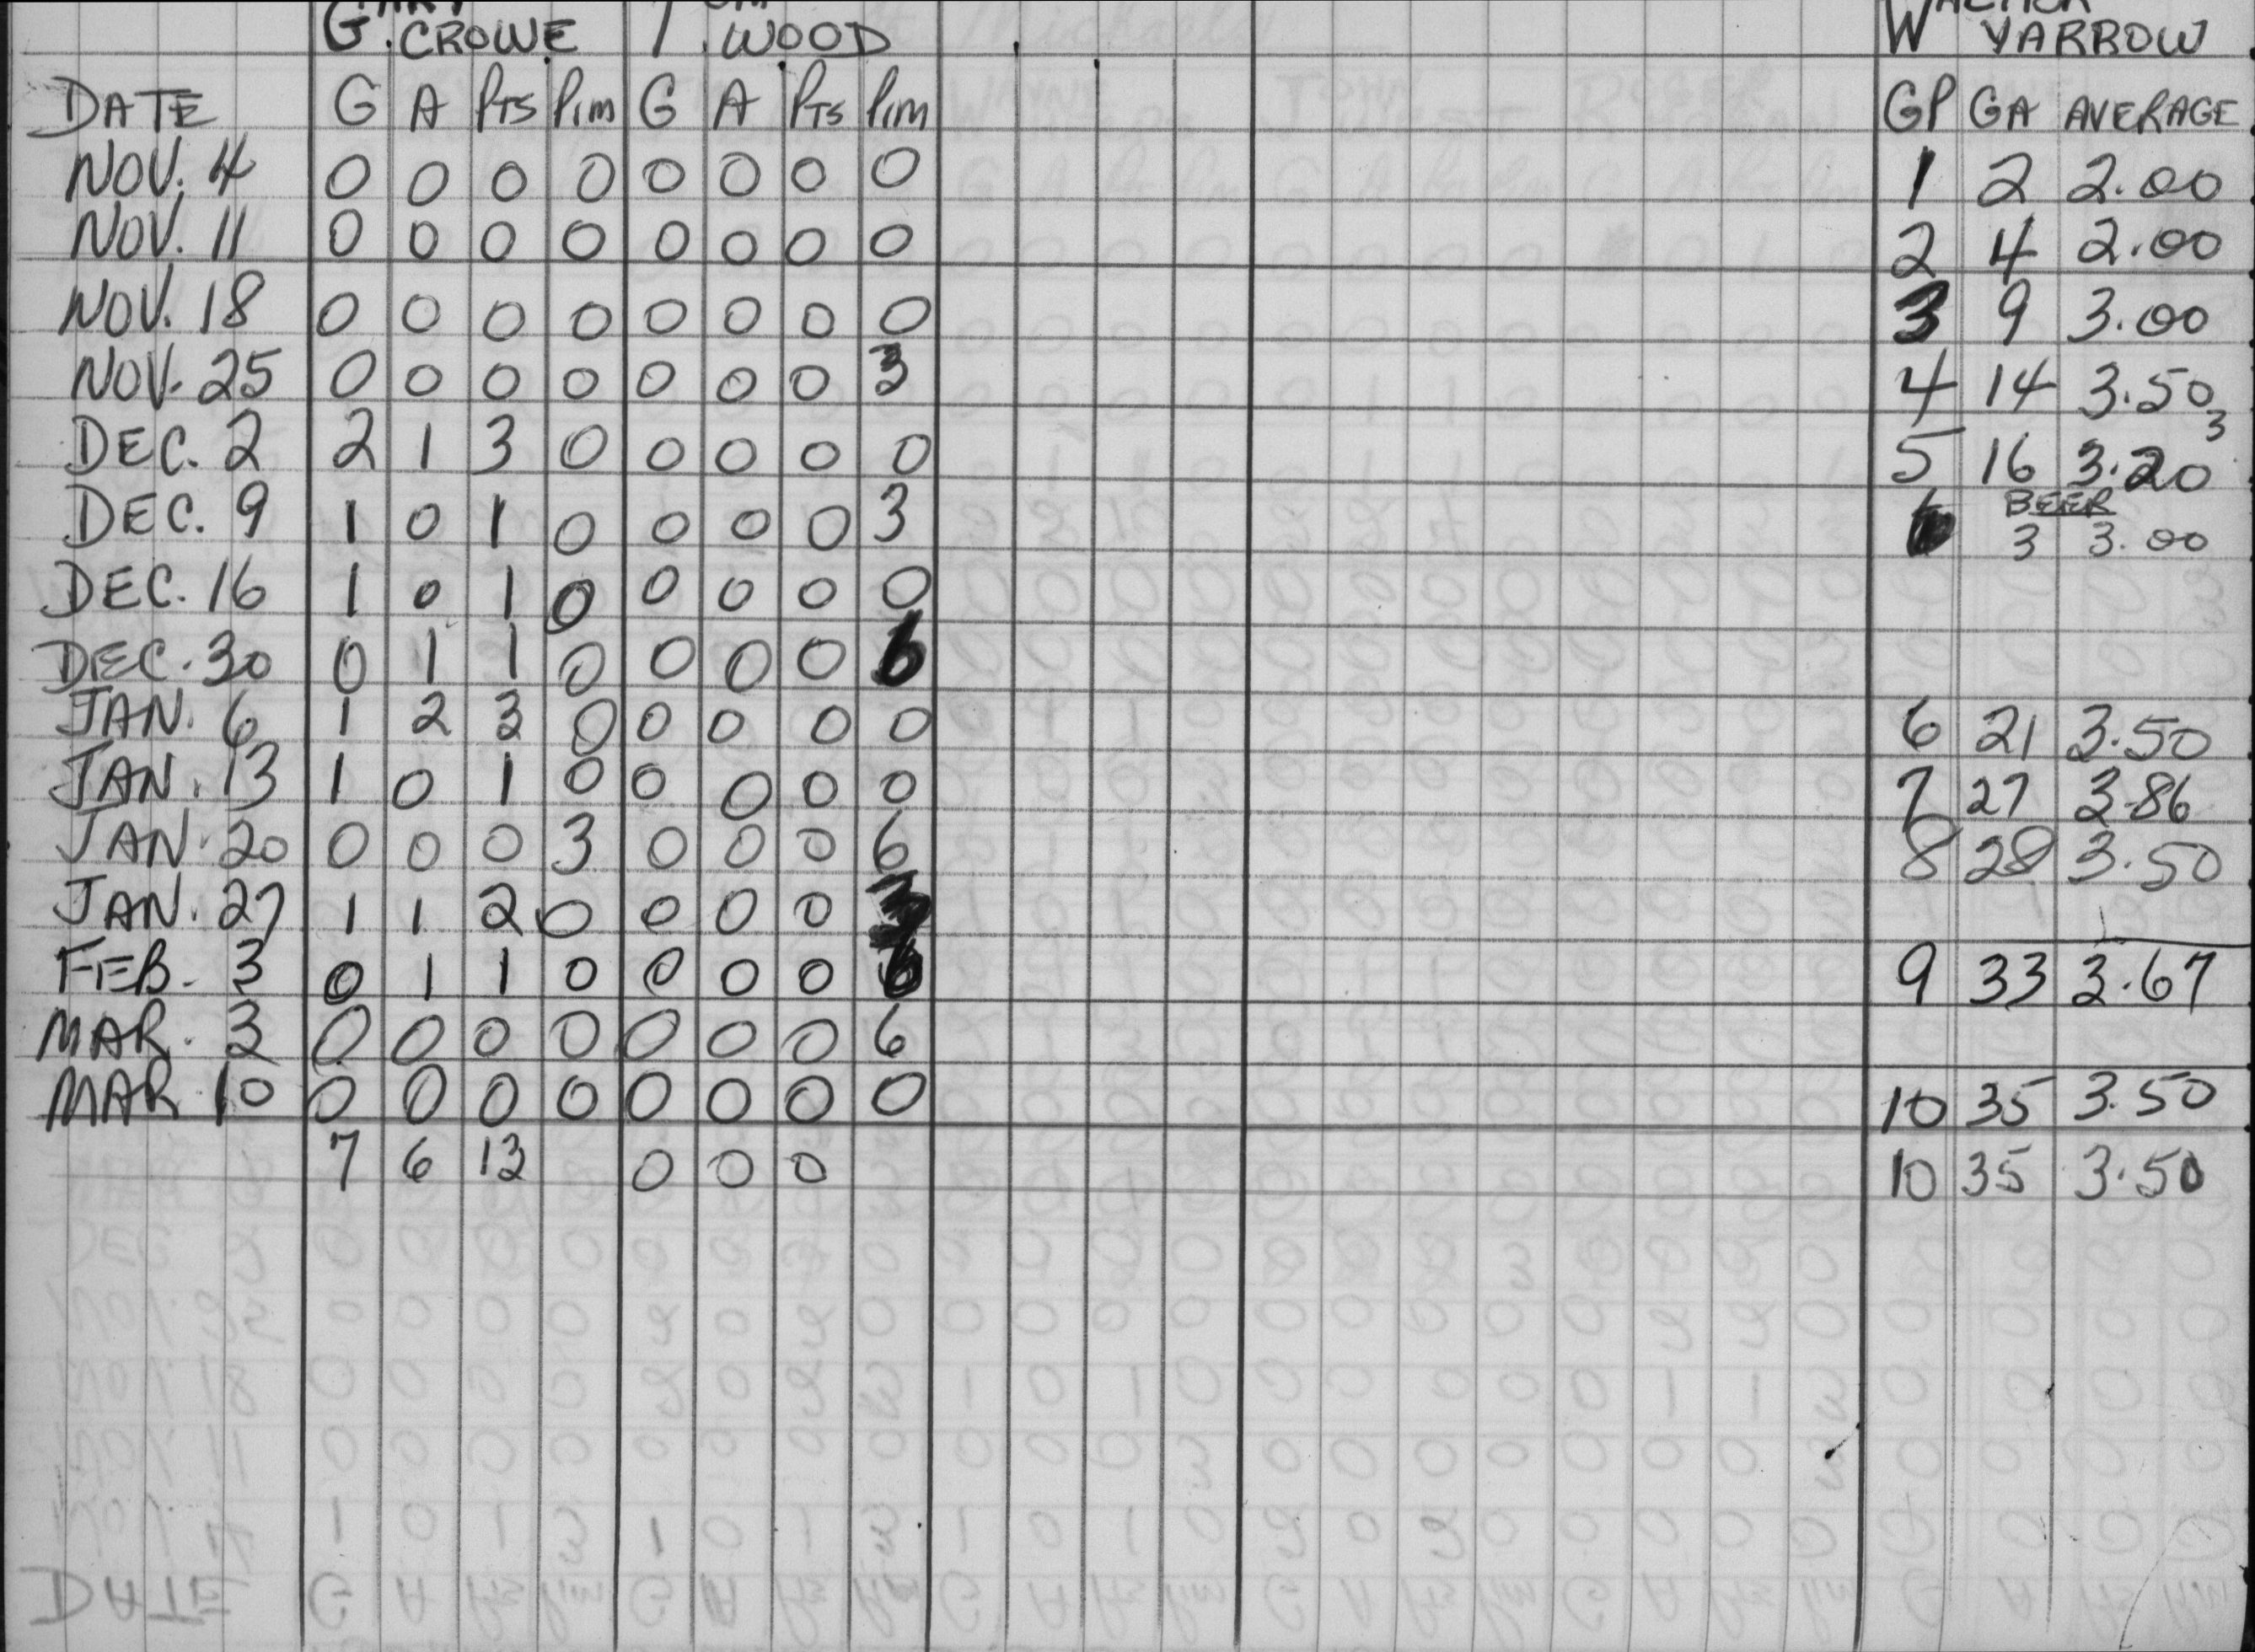 G. CROWE T. WOOD W YARROW
DATE G A PTS PIM G A PTS PIM GP GA AVERAGE
NOV. 4 0 0 0 0 0 0 0 0 1 2 2.00
NOV. 11 0 0 0 0 0 0 0 0 2 4 2.00
NOV. 18 0 0 0 0 0 0 0 0 3 9 3.00
NOV. 25 0 0 0 0 0 0 0 3 4 14 3.50
3
DEC. 2 2 1 3 0 0 0 0 0 5 16 3.20
BEER
DEC. 9 1 0 1 0 0 0 0 3 3 3.00
DEC. 16 1 0 1 0 0 0 0 0
DEC. 30 0 1 1 0 0 0 0 6
JAN. 6 1 2 3 0 0 0 0 0 6 21 3.50
JAN. 13 1 0 1 0 0 0 0 0 7 27 3.86
JAN. 20 0 0 0 3 0 0 0 6 8 28 3.50
JAN. 27 1 1 2 0 0 0 0 3
FEB. 3 0 1 1 0 0 0 0 6 9 33 3.67
MAR. 3 0 0 0 0 0 0 0 6
MAR 10 0 0 0 0 0 0 0 0 10 35 3.50
7 6 13 0 0 0 10 35 3.50